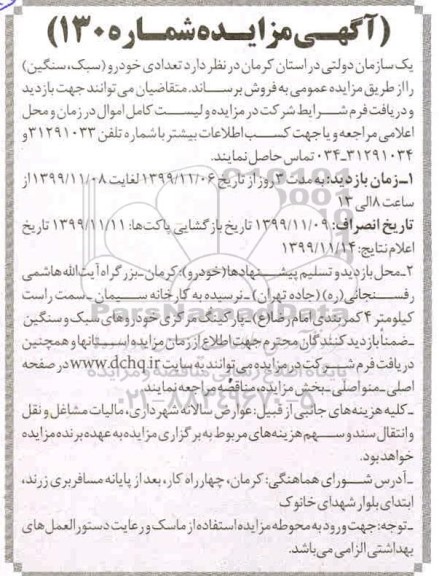 (آگهی مزایده شماره ۱۳۰)
یک سازمان دولتی در استان کرمان در نظر دارد تعدادی خودرو (سبک، سنگین)
را از طریق مزایده عمومی به فروش برساند. متقاضیان می توانند جهت بازدید
و دریافت فرم شرایط شرکت در مزایده و لیست کامل اموال در زمان و محل
اعلامی مراجعه و یا جهت کسب اطلاعات بیشتر با شماره تلفن ۳۱۲۹۱۰۳۳ و
۳۱۲۹۱۰۳۴-۰۳۴ تماس حاصل نمایند.
۱-زمان بازدید: به مدت ۳ روز از تاریخ ۱۳۹۹/۱۱/۰۶ لغایت ۱۳۹۹/۱۱/۰۸ از
ساعت ۸ الی ۱۳
تاریخ انصراف: ۱۳۹۹/۱۱/۰۹ تاریخ بازگشایی پاکت‌ها: ۱۳۹۹/۱۱/۱۱ تاریخ
اعلام نتایج: ۱۳۹۹/۱۱/۱۴
۲-محل بازدید و تسلیم پیشنهادها(خودرو): کرمان-بزرگراه آیت الله هاشمی
رفسنجانی(ره) (جاده تهران) - نرسیده به کارخانه سیمان - سمت راست
کیلومتر ۴ کمربندی امام رضا(ع) - پارکینگ مرکزی خودروهای سبک و سنگین
- ضمناً بازدیدکنندگان محترم جهت اطلاع از زمان مزایده استانها و همچنین
دریافت فرم شرکت در مزایده می توانند به سایت www.dchq.ir در صفحه
اصلی-منو اصلی-بخش مزایده، مناقصه مراجعه نمایند.
- کلیه هزینه های جانبی از قبیل: عوارض سالانه شهرداری، مالیات مشاغل و نقل
و انتقال سند و سهم هزینه های مربوط به برگزاری مزایده به عهده برنده مزایده
خواهد بود.
- آدرس شورای هماهنگی: کرمان، چهارراه کار، بعد از پایانه مسافربری زرند،
ابتدای بلوار شهدای خانوک
- توجه: جهت ورود به محوطه مزایده استفاده از ماسک و رعایت دستورالعمل های
بهداشتی الزامی می باشد.
ParsNamadData
۰۲۱-۸۸۳۴۹۶۷۰-۵